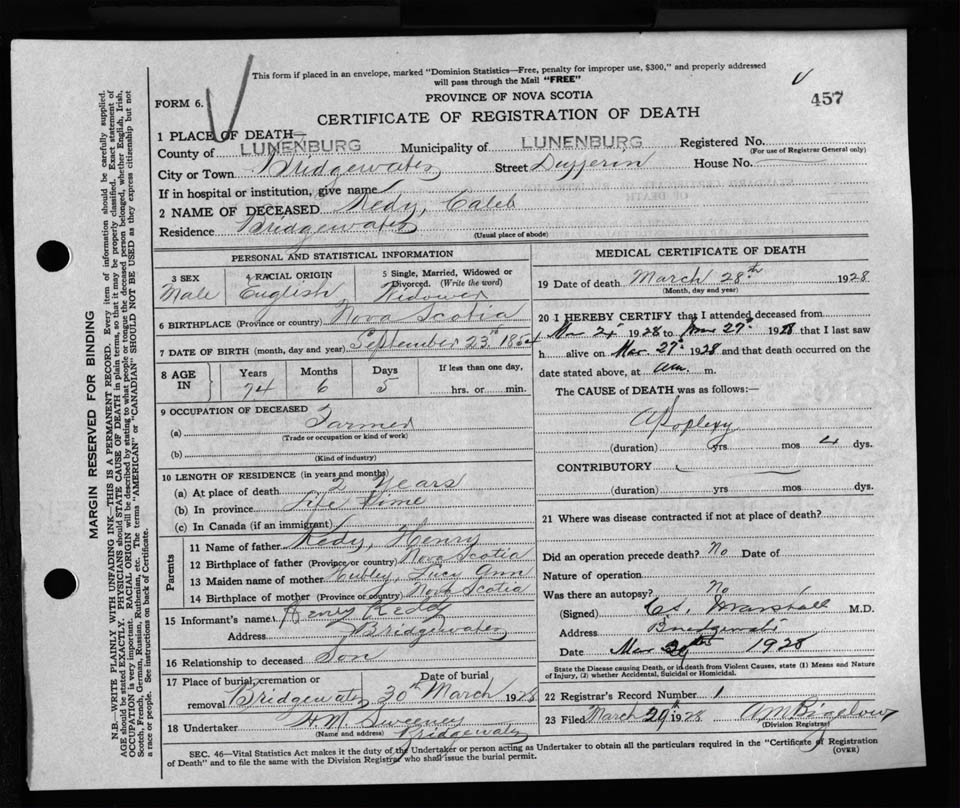 This form if placed in an envelope, marked "Dominion Statistics—Free, penalty for improper use, $300," and properly addressed
will pass through the Mail "FREE"
FORM 6.
PROVINCE OF NOVA SCOTIA
457
CERTIFICATE OF REGISTRATION OF DEATH
1 PLACE OF DEATH—
County of LUNENBURG Municipality of LUNENBURG Registered No.
(For use of Registrar General only)
City or Town Bridgewater Street Dufferin House No.
If in hospital or institution, give name
2 NAME OF DECEASED Kedy, Caleb
Residence Bridgewater
(Usual place of abode)
PERSONAL AND STATISTICAL INFORMATION
3 SEX Male
4 RACIAL ORIGIN English
5 Single, Married, Widowed or Divorced. (Write the word) Widower
6 BIRTHPLACE (Province or country) Nova Scotia
7 DATE OF BIRTH (month, day and year) September 23rd
8 AGE IN
Years Months Days If less than one day,
74 6 5 hrs. or min.
9 OCCUPATION OF DECEASED
(a) Farmer
(Trade or occupation or kind of work)
(b)
(Kind of industry)
10 LENGTH OF RESIDENCE (in years and months)
(a) At place of death 2 Years
(b) In province Life Time
(c) In Canada (if an immigrant)
Parents
11 Name of father Kedy, Henry
12 Birthplace of father (Province or country) Nova Scotia
13 Maiden name of mother Hubley, Lucy Ann
14 Birthplace of mother (Province or country) Nova Scotia
15 Informant's name Henry Keddy
Address Bridgewater
16 Relationship to deceased Son
17 Place of burial, cremation or removal Bridgewater
Date of burial 30th March 1928
18 Undertaker H.M. Sweeney
(Name and address) Bridgewater
MEDICAL CERTIFICATE OF DEATH
19 Date of death March 28th 1928
(Month, day and year)
20 I HEREBY CERTIFY that I attended deceased from
Mar 24 1928 to Mar 27th 1928 that I last saw
h alive on Mar. 27th 1928 and that death occurred on the
date stated above, at am. m.
The CAUSE of DEATH was as follows:—
Apoplexy
(duration) yrs mos 4 dys.
CONTRIBUTORY
(duration) yrs mos dys.
21 Where was disease contracted if not at place of death?
Did an operation precede death? No Date of
Nature of operation
Was there an autopsy? No
(Signed) Marshall M.D.
Address Bridgewater
Date Mar 1928
State the Disease causing Death, or in death from Violent Causes, state (1) Means and Nature
of Injury, (2) whether Accidental, Suicidal or Homicidal.
22 Registrar's Record Number 1
23 Filed March 29th 1928 A M Bigelow
(Division Registrar)
SEC. 46—Vital Statistics Act makes it the duty of the Undertaker or person acting as Undertaker to obtain all the particulars required in the "Certificate of Registration
of Death" and to file the same with the Division Registrar who shall issue the burial permit.
(OVER)
MARGIN RESERVED FOR BINDING
N.B.—WRITE PLAINLY WITH UNFADING INK—THIS IS A PERMANENT RECORD. Every item of information should be carefully supplied.
AGE should be stated EXACTLY. PHYSICIANS should STATE CAUSE OF DEATH in plain terms, so that it may be properly classified. Exact statement of
OCCUPATION is very important. RACIAL ORIGIN will be described by stating to what people or tongue the deceased person belonged, whether English, Irish,
Scotch, French, German, Russian, Ruthenian, etc. The terms "AMERICAN" or "CANADIAN" SHOULD NOT BE USED as they express citizenship but not
a race or people. See instructions on back of Certificate.